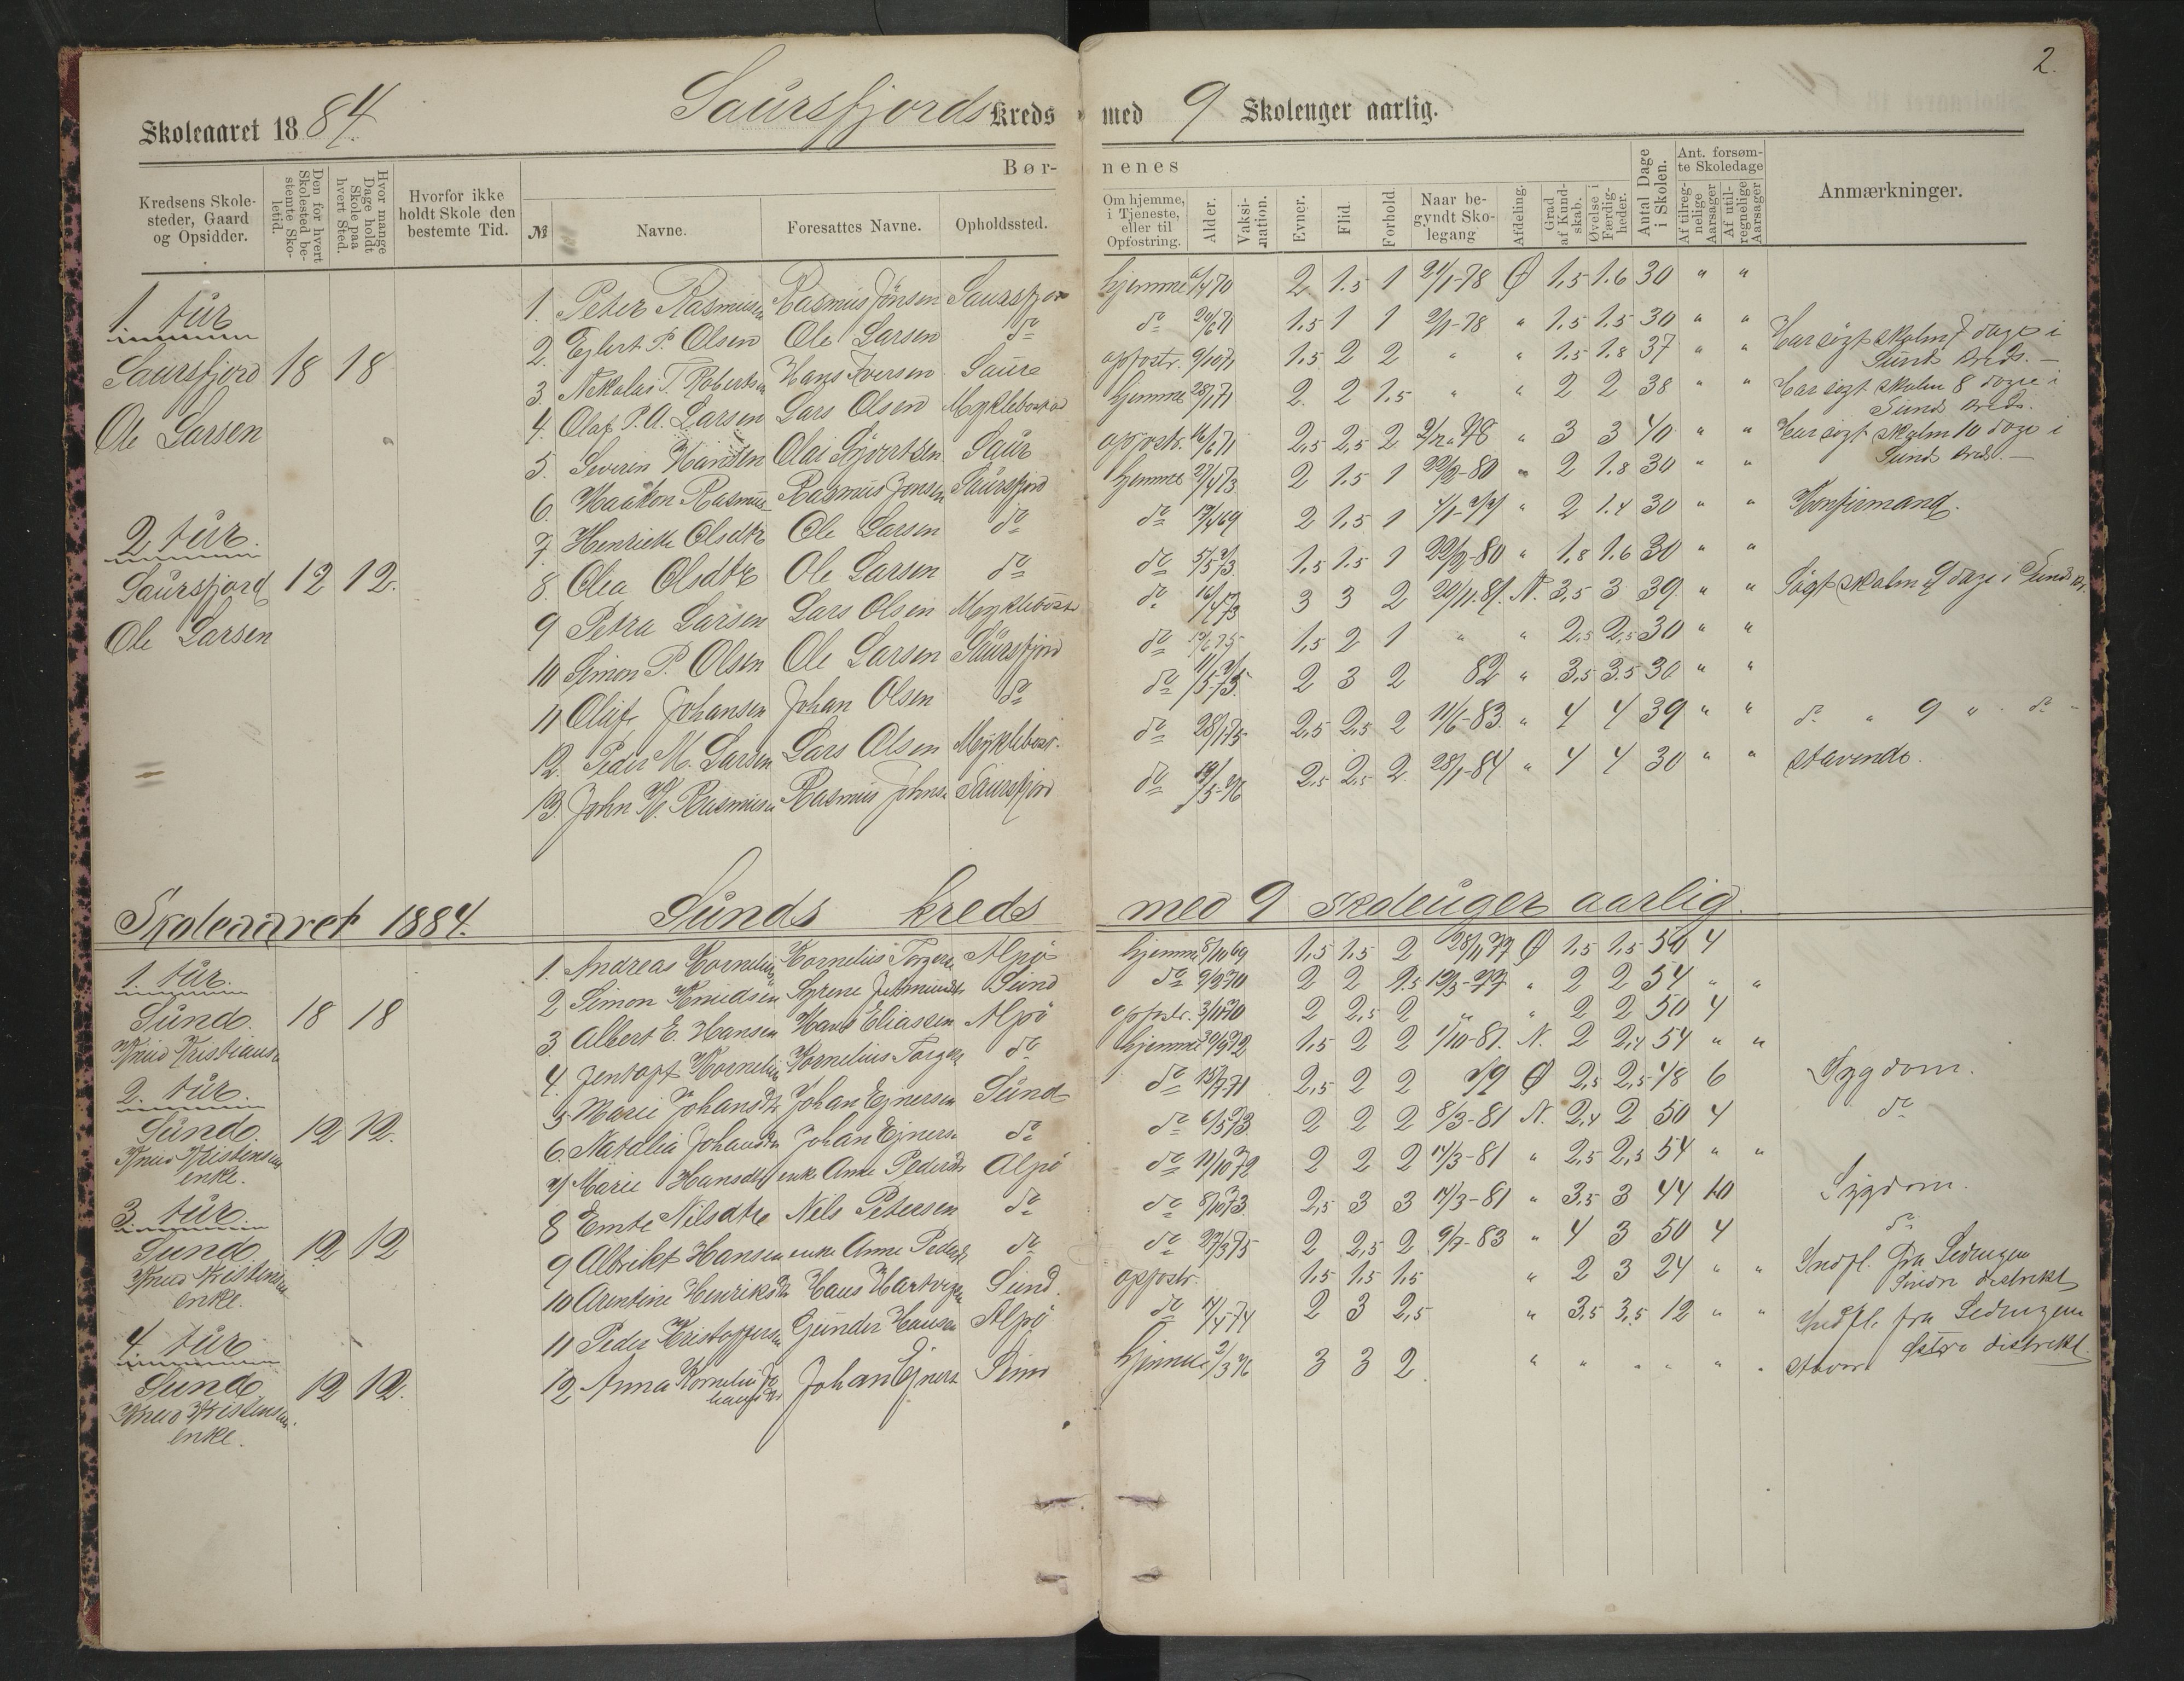 2.
Skoleaaret 1884. Saursfjords Kreds med 9 Skoleuger aarlig.
Børnenes
Kredsens Skolesteder, Gaard og Opsidder.
Den for hvert Skolested bestemte Skoletid.
Hvor mange Dage holdt Skole paa hvert Sted.
Hvorfor ikke holdt Skole den bestemte Tid.
№
Navne.
Foresattes Navne.
Opholdssted.
Om hjemme, i Tjeneste, eller til Opfostring.
Alder.
Vaksination.
Evner.
Flid.
Forhold
Naar begyndt Skolegang
Afdeling.
Grad af Kundskab.
Øvelse i Færdigheder.
Antal Dage i Skolen.
Ant. forsømte Skoledage
Af tilregnelige Aarsager
Af utilregnelige Aarsager
Anmærkninger.
1 tür
Saursfjord 18 18
Ole Larsen
2 tür.
Saursfjord 12 12.
Ole Larsen
1. Peter Rasmusen Rasmus Jonsen Saursfjor hjemme 2 1.5 1 21/1-78 Ø 1,5 1.6 30 " "
2. Eglert P. Olsen Ole Larsen do do 1,5 1 1 2/1-78 " 1,5 1.5 30 " "
3. Nikolai T. Robertsen Hans Iversen Saure opfostr. 9/10 71 1.5 2 2 " " 1.5 1.8 37 " " Har søgt skolen 7 dage i Sunds kreds. —
4. Olaf P. A. Larsen Lars Olsen Myklebostad hjemme 28/1 71 2. 2 1.5 " " 2 2 38 " " Har søgt skolen 8 dage i Sunds kreds.
5. Severin Hansen Olai Sjvertsen Saur opfostr. 16/6 71 2,5 2,5 2 " 3 3 40 " " Har søgt skolen 10 dage i Sunds kreds. —
6. Haakon Rasmus Rasmus Jonsen Saursfjord hjemme 27/4 73 2 1.5 1 22/2-80 " 2 1.8 30 " "
7. Henrikke Olsdtr Ole Larsen do do 19/4 69 2 1,5 1 " 2 1.4 30 " " Konfirmand.
8. Olea Olsdtr Ole Larsen do do 5/5 73. 1,5 1.5 1 22/2-80 " 1,8 1.6 30 " "
9 Petra Larsen Lars Olsen Myklebost do 16/4 73 3 3 2 20/11.81. N. 3,5 3 39. " " Søgt skolen 9 dage i Sunds kr.
10 Simon P. Olsen Ole Larsen Saursfjord do 1,5 2 1 " " 2,5 2,5 30 " "
11 Oluf Johansen Johan Olsen do do 11/5-75. 2 3 2 82 " 3,5 3.5 30 " "
12. Peder M. Larsen Lars Olsen Myklebost. do 28/1 75 2,5 2,5 2 11/6-83. " 4 4 39 " " do " 9 " do "
13. John K. Rasmusen Rasmus Johns. Saursfjord do 19/5-76 2,5 2,5 2 28/1-84 " 4 4 30 " " stavende.
Skoleaaret 1884. Sunds kreds med 9 skoleuger aarlig.
1. tür.
Sund. 18 18
Knud Kristiansen
2. tür.
Sund. 12 12.
Knud Kristensens
enke.
3 tür
Sund 12 12
Knud Kristensens
enke.
4. tür
Sund 12 12.
Knud Kristensens
enke.
1. Andreas Kornelius Kornelius Torgers. Alpø hjemme 8/10 69 1.5 1.5 2 28/11 77 Ø 1.5 1.5 50 4
2 Simon Knudsen Syrene Sund do 9/2 70 2 2 1.5 12/3-77 " 2 2 54 " "
3. Albert E. Hansen Hans Eliassen Alpø opfostr. 3/10 70 2 2,5 2 " " 2 2 50 4
4. Jentoft Kornelius Kornelius Torgers do hjemme 30/9 72 1,5 2 2 1/10-81. N. 2 2,4 54 " "
5. Marie Johansdtr Johan Ejnersen Sund do 15/7 71 2,5 2 2 79 Ø 2,5 2,5 48 6 Sygdom.
6. Natalia Johansdtr Johan Ejners. do do 6/5 73. 2 2 2 8/3-81 N. 2,4 2 50 4 do
7 Marie Hansdtr enke Anne Pedersdtr Alpø do 11/10 72 2 2 2 14/3-81 " 2,5 2,5 54 " "
8 Emte Nilsdtr Nels Petersen do do 8/10 73 2,5 3 3 14/3-81 " 3.5 3 44 10 Sygdom.
9 Albrikt Hansen enke Anne Pedersdtr do do 27/3 75 2 2,5 2 9/7-83 " 4 3 50 4 do
10 Arentine Henriksdtr Hans Hartvigsen Sund. opfostr. 1.5 1.5 1.5 " 2 3 24 " " Indfl. fra Ledingen Søndre distrikt
11 Peder Kristoffersen Gunder Hansen Alpø do 14/4-74 2 3 2,5 " 3,5 3,5 12 " " Indfl. fra Ledingen Østre distrikt.
12 Anna Kornelia Johansdtr Johan Ejners Sund hjemme 2/3 76 3 3 2 " " " " " Stavar